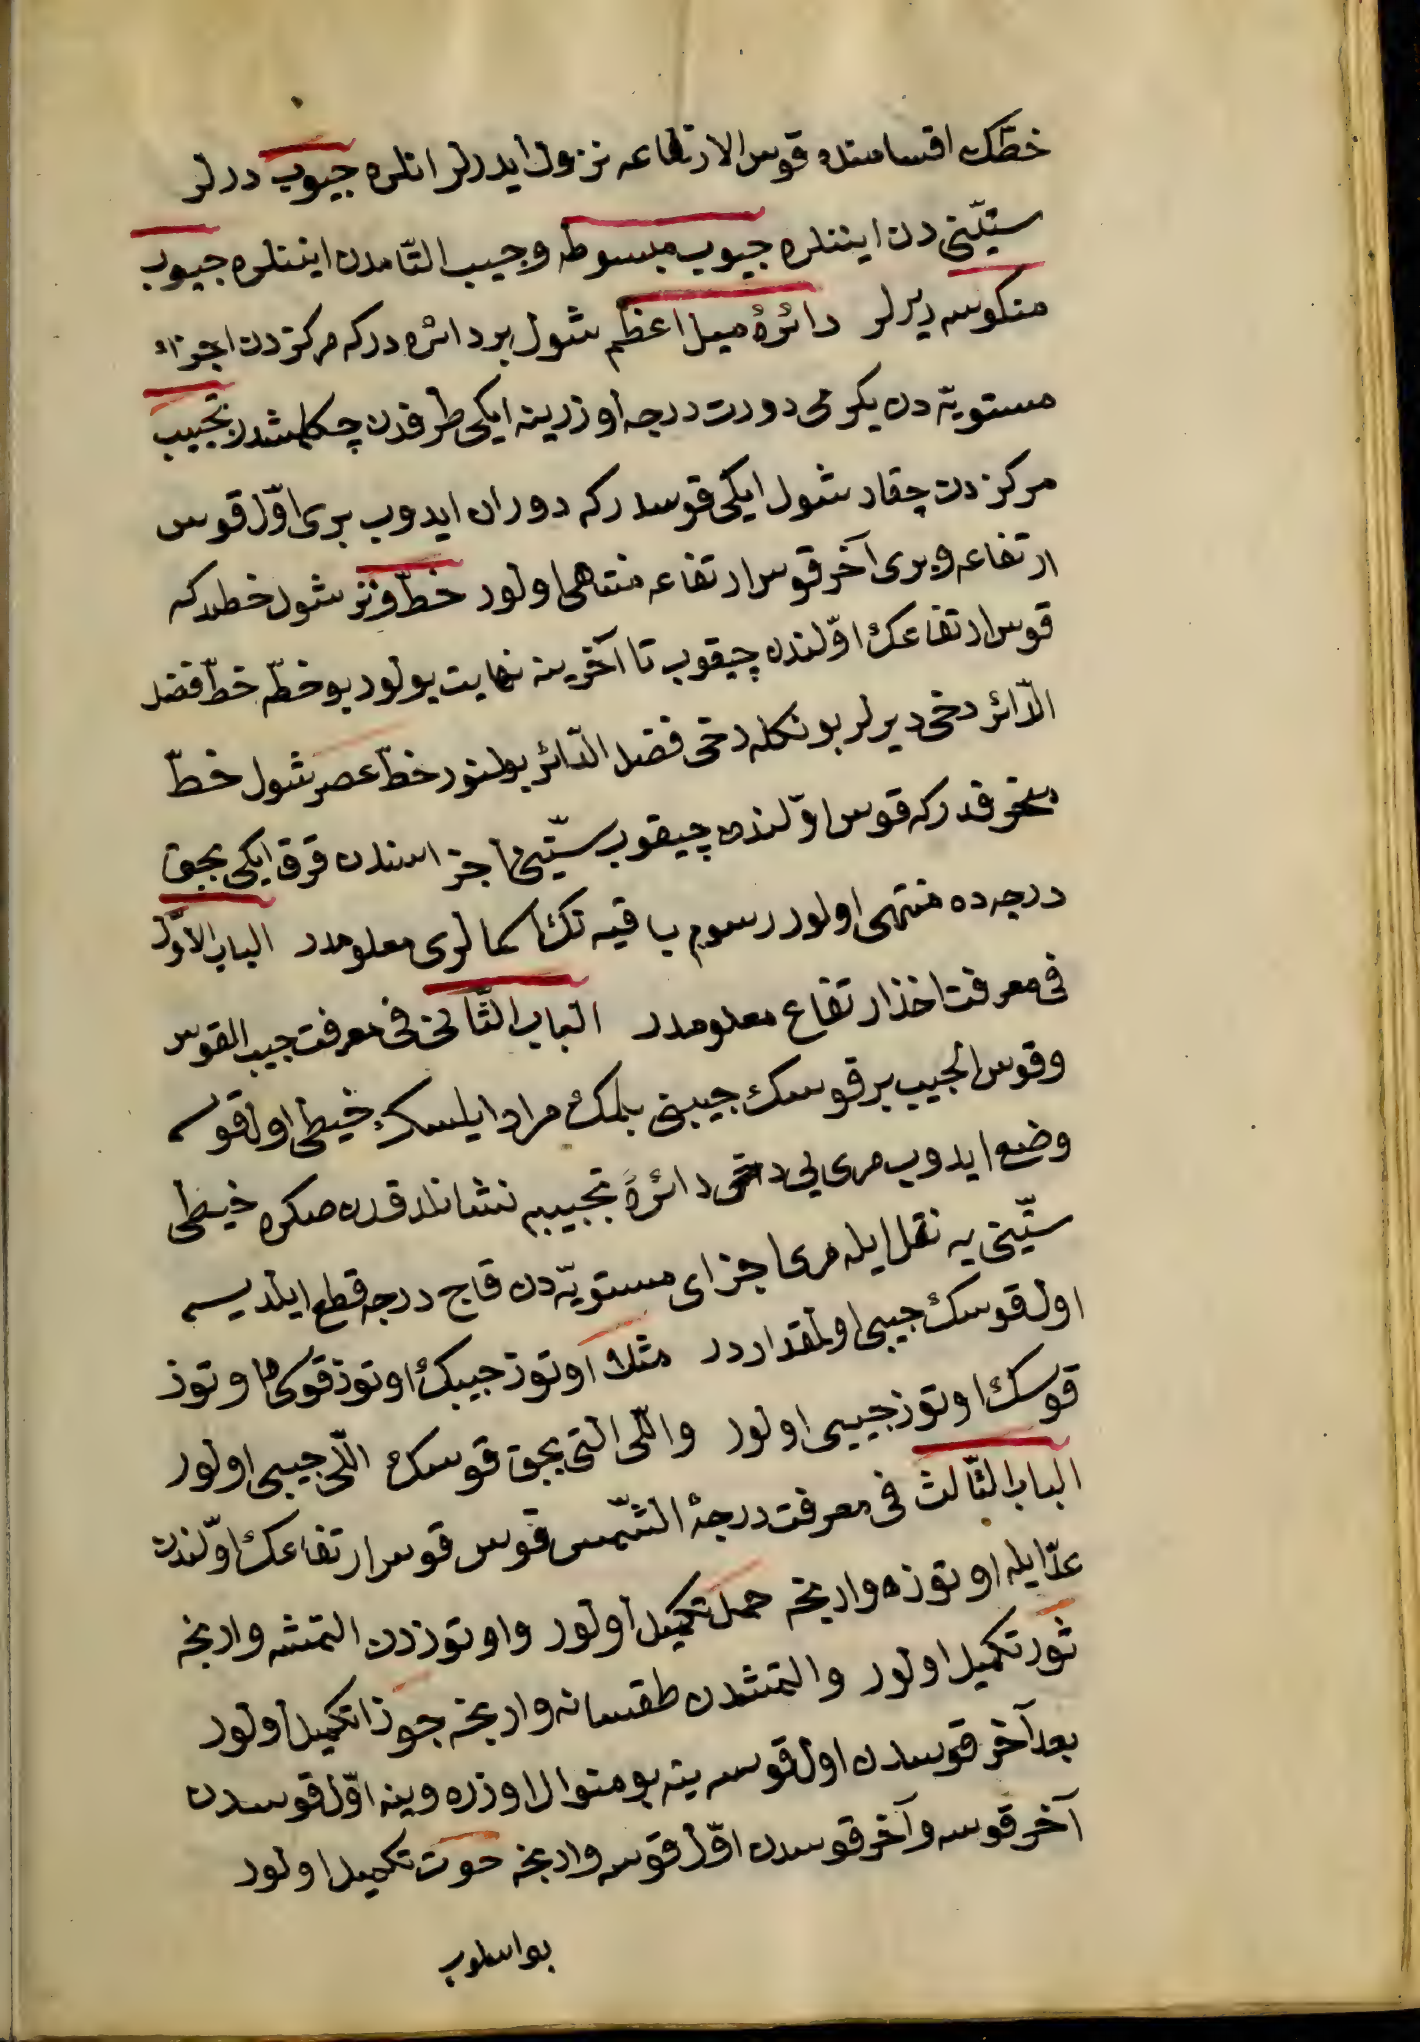 خطك اقسامندن قوس الارتفاعه نزول ايدرلر انلره جيوب درلر
ستّينى دن ايننلره جيوب مبسوطه وجيب التّامدن ايننلره جيوب
منكوسه ديرلر دائرۀ ميل اعظم شول بر دائره دركه مركزدن اجزاء
مستويّه دن يكرمى دورت درجه اوزرينه ايكى طرفدن چكلمشدر تجييب
مركزدن چقار شول ايكى قوسدركه دوران ايدوب برى اوّل قوس
ارتفاعه وبرى آخر قوس ارتفاعه منتهى اولور خطّ وتر شول خطدركه
قوس ارتفاعك اوّلندن چيقوب تا آخرينه نهايت بولور بو خطّه خطّ فضل
الدّائر دخى ديرلر بونكله دخى فضل الدّائر بولنور خطّ عصر شول خطّ
منحرفدركه قوس اوّلندن چيقوب ستّينى اجزاسندن قرق ايكى بچق
درجه ده منتهى اولور رسوم باقيه نك اسمالرى معلومدر الباب الاوّل
فى معرفت اخذ ارتفاع معلومدر الباب الثّانى فى معرفت جيب القوس
وقوس الجيب بر قوسك جيبنى بلمك مراد ايلسك خيطى اول قوسه
وضع ايدوب مرى يى دخى دائرۀ تجييبه نشانلدقدن صكره خيطى
ستّينى يه نقل ايله مرى اجزاى مستويّه دن قاچ درجه قطع ايلديسه
اول قوسك جيبى اولمقداردر مثلا اوتوز جيبك اوتوز قوسى اوتوز
قوسك اوتوز جيبى اولور واللّى التى بچق قوسك اللّى جيبى اولور
الباب الثّالث فى معرفت درجۀ الشّمس قوس قوس ارتفاعك اوّلندن
عدّ ايله اوتوزه وارنجه حمل تكميل اولور واوتوزدن التمشه وارنجه
ثور تكميل اولور والتمشدن طقسانه وارنجه جوزا تكميل اولور
بعد آخر قوسدن اول قوسه ينه بو منوال اوزره وينه اوّل قوسدن
آخر قوسه وآخر قوسدن اوّل قوسه وارنجه حوت تكميل اولور
بو اسلوب